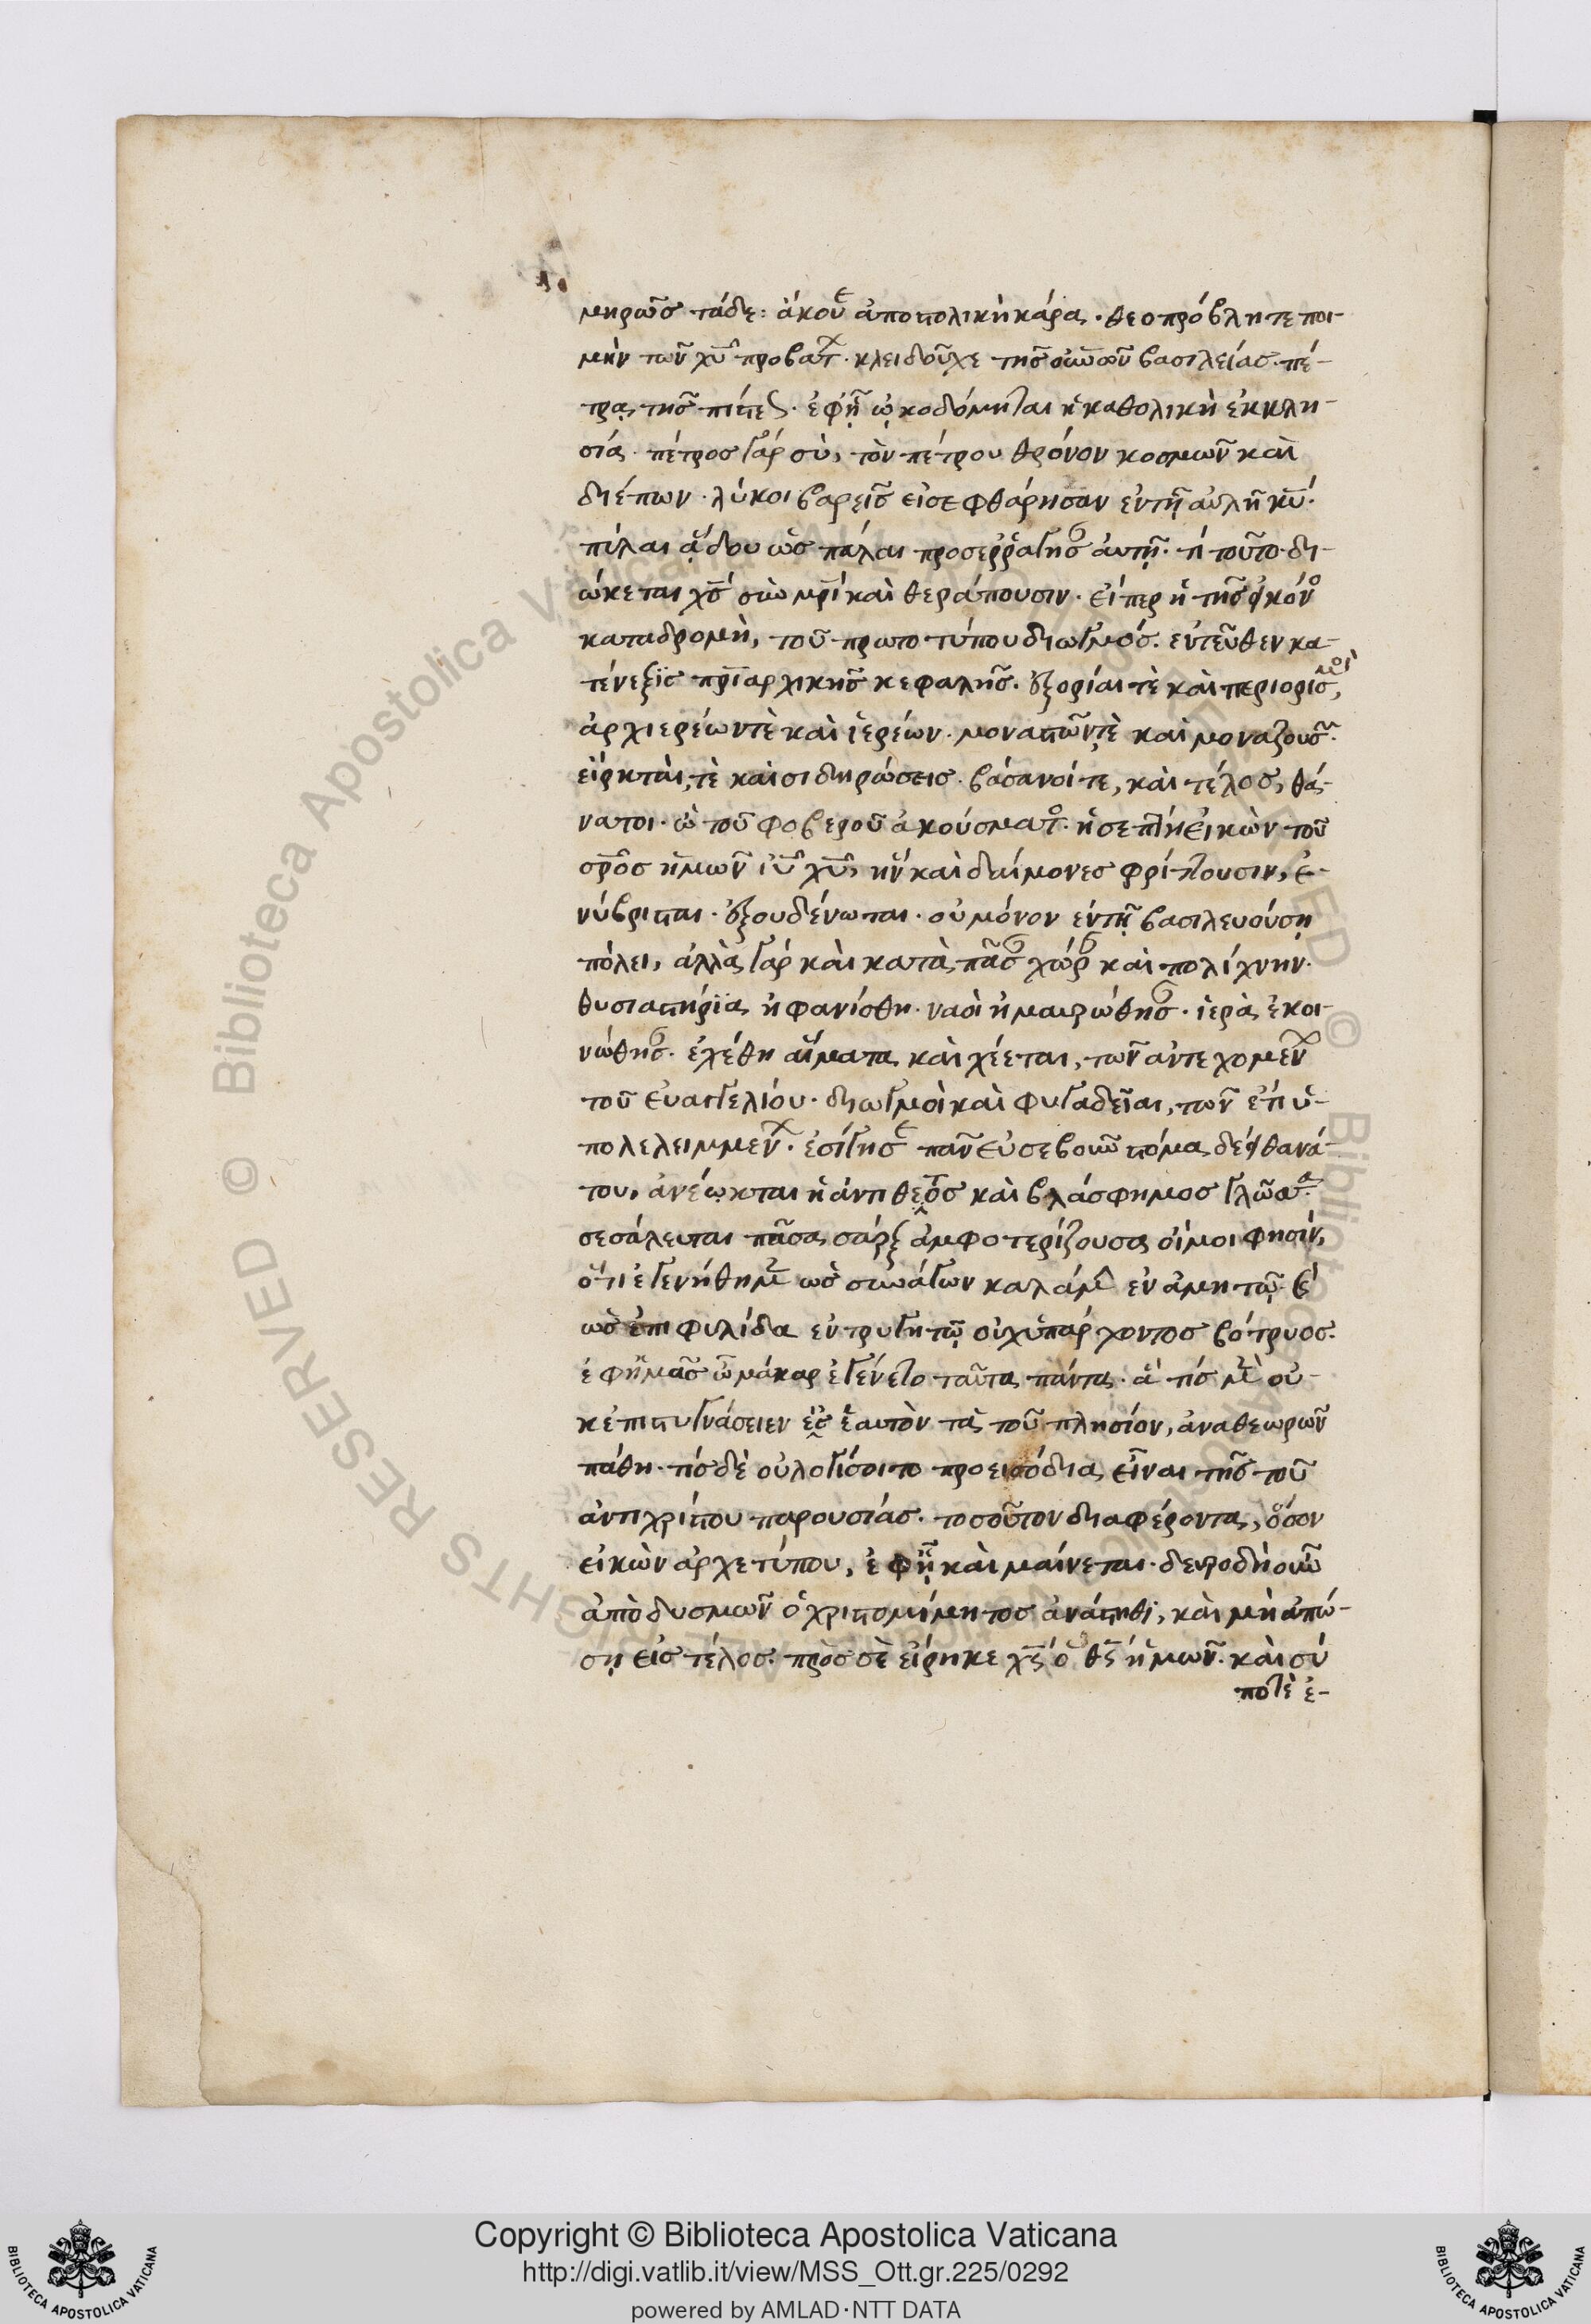 μηρῶς τάδε: ἄκουε ἀποστολικὴ κάρα. θεοπρόβλητε ποι-
μὴν τῶν χυ προβάτων. κλειδοῦχε τῆς οὐνῶν βασιλείας. πέ-
τρα τῆς πίστεως. ἐφ ᾗ ᾠκοδόμηται ἡ καθολικὴ ἐκκλη-
σία. πέτρος γὰρ σὺ, τὸν πέτρου θρόνον κοσμῶν καὶ
διέπων. λύκοι βαρεῖς εἰσεφθάρησαν ἐν τῇ αὐλῇ κυ.
πύλαι ᾅδου ὡς πάλαι προσερράγησαν αὐτῇ. τί τοῦτο. δι-
ώκεται χς σὺν μρι καὶ θεράπουσιν. εἴπερ ἡ τῆς εἰκόνος
καταδρομὴ, τοῦ πρωτοτύπου διωγμός. ἐντεῦθεν κα-
τένεξις πριαρχικῆς κεφαλῆς. ἐξορίαι τὲ καὶ περιορισμοὶ,
ἀρχιερέων τὲ καὶ ἱερέων. μοναστῶν τὲ καὶ μοναζουσῶν.
εἱρκταί τὲ καὶ σιδηρώσεις. βάσανοί τε, καὶ τέλος, θά-
νατοι. ὢ τοῦ φοβεροῦ ἀκούσματος. ἡ σεπτὴ εἰκὼν τοῦ
σρος ἡμῶν ιυ χυ, ἣν καὶ δαίμονες φρίττουσιν, ἐ-
νύβρισται. ἐξουδένωται. οὐ μόνον ἐν τῇ βασιλευούσῃ
πόλει, ἀλλὰ γὰρ καὶ κατὰ πᾶσαν χώραν καὶ πολίχνην.
θυσιαστήρια ἠφανίσθη. ναοὶ ἠμαυρώθησαν. ἱερὰ ἐκοι-
νώθησαν. ἐχέθη αἵματα καὶ χέεται, τῶν ἀντεχομένων
τοῦ εὐαγγελίου. διωγμοὶ καὶ φυγαδεῖαι, τῶν ἔτι ὑ-
πολελειμμένων. ἐσίγησε πᾶν εὐσεβοῦν στόμα δέει θανά-
του, ἀνέῳκται ἡ ἀντίθεος καὶ βλάσφημος γλῶσσα.
σεσάλευται πᾶσα σάρξ ἀμφοτερίζουσα οἴμοι φησίν,
ὅτι ἐγενήθημεν ὡς συνάγων καλάμην ἐν ἀμητῷ. καὶ
ὡς ἐπιφυλλίδα ἐν τρυγητῷ οὐχ ὑπάρχοντος βότρυος.
ἐφ ἡμᾶς ὦ μάκαρ ἐγένετο ταῦτα πάντα. ἃ τίς μὲν οὐ-
κ ἐπιστυγνάσειεν ὡς ἑαυτὸν τὰ τοῦ πλησίον, ἀναθεωρῶν
πάθη. τίς δὲ οὐ λογίσοιτο προεισόδια εἶναι τῆς τοῦ
ἀντιχρίστου παρουσίας. τοσοῦτον διαφέροντα, ὅσον
εἰκὼν ἀρχετύπου, ἐφ ᾗ καὶ μαίνεται. δεῦρο δὴ οὖν
ἀπὸ δυσμῶν ὁ χριστομίμητος ἀνάστηθι, καὶ μὴ ἀπώ-
σῃ εἰς τέλος. πρὸς σὲ εἴρηκε χς ὁ θς ἡμῶν. καὶ σύ
ποτὲ ἐ-
Copyright © Biblioteca Apostolica Vaticana
http://digi.vatlib.it/view/MSS_Ott.gr.225/0292
powered by AMLAD·NTT DATA